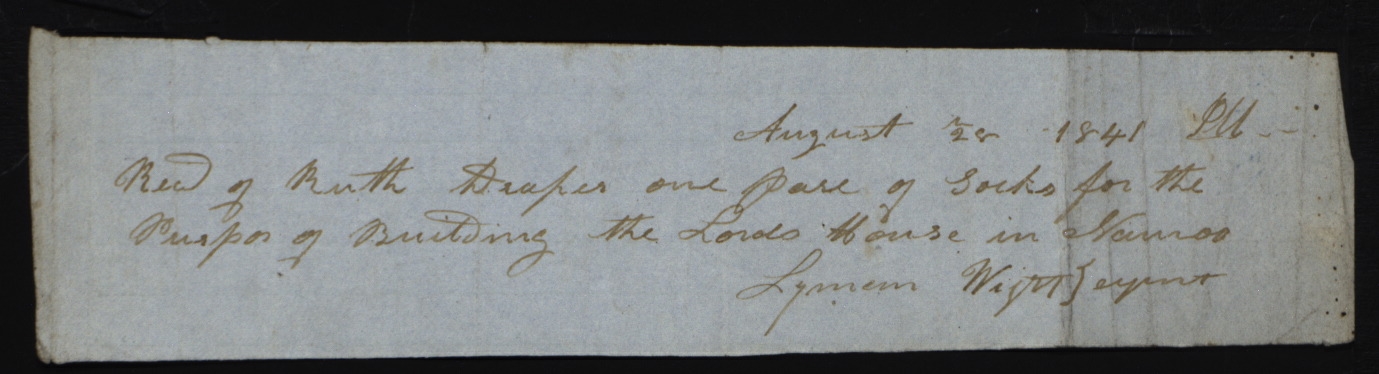 August 28 1841 Ill
Recd of Ruth Draper one pare of Socks for the
Purpos of Building the Lords House in Nauvoo
Lyman Wight } agent